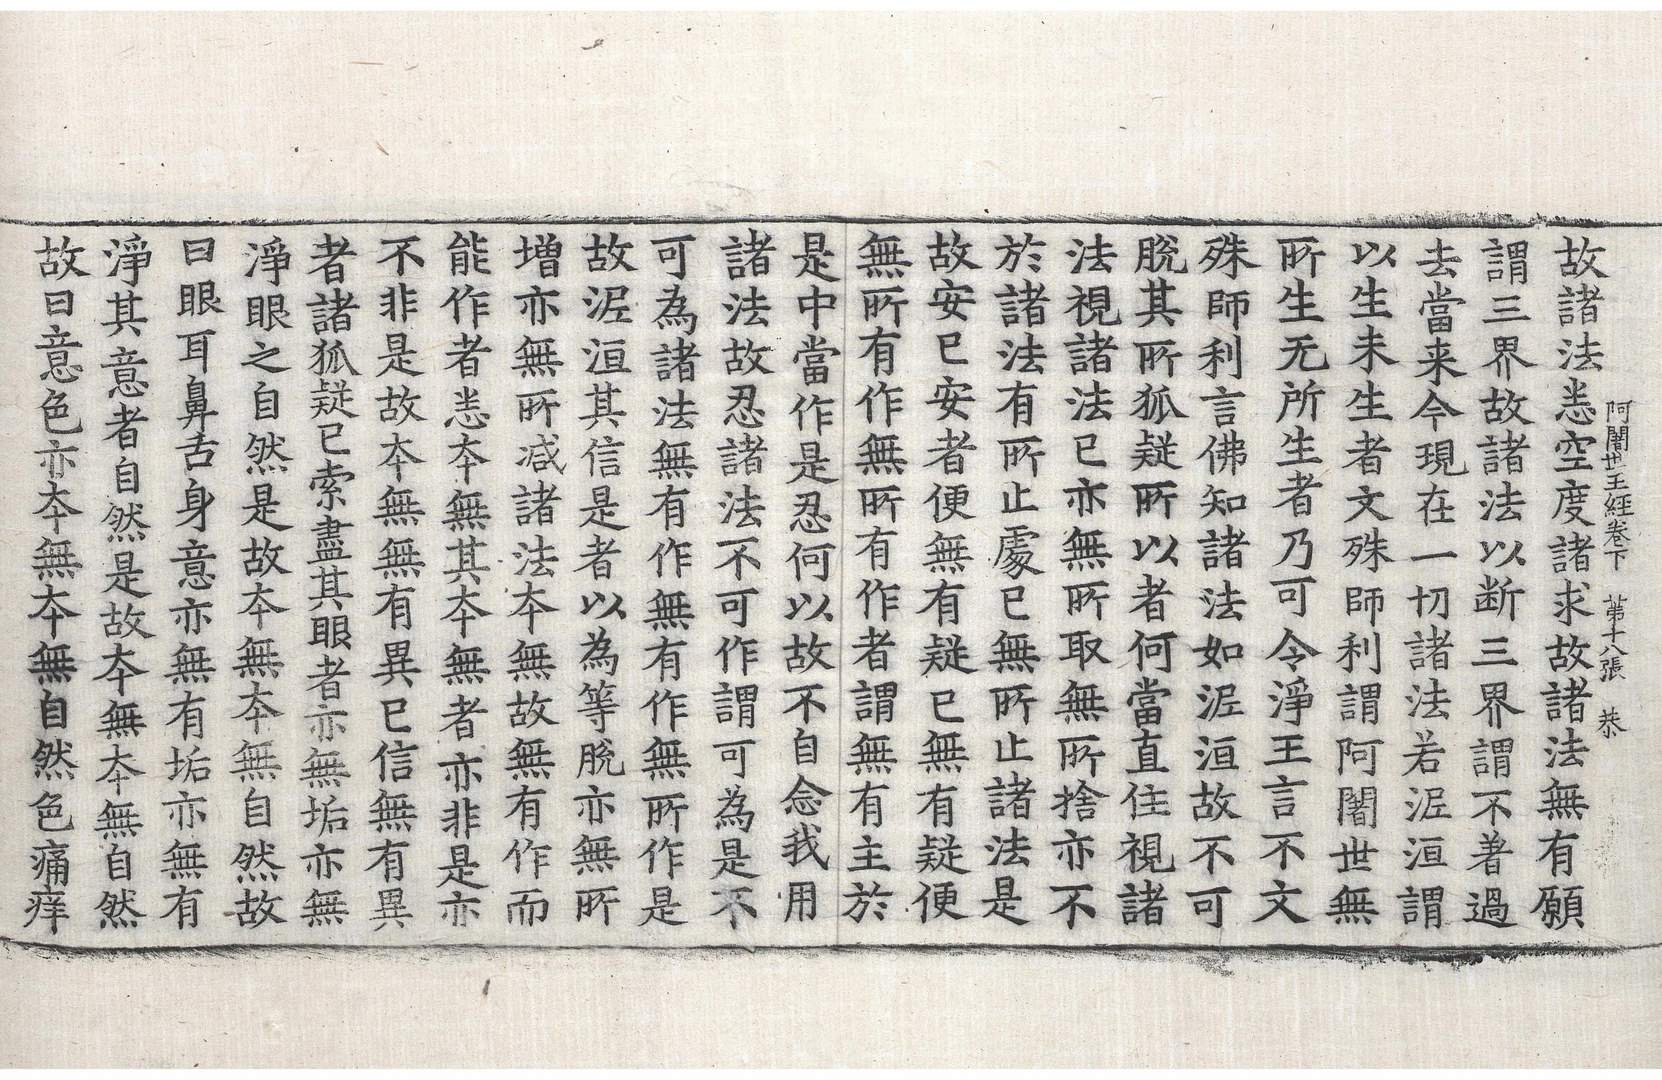 阿闍世王經卷下　第十八張　恭
故諸法悉空度諸求故諸法無有願
謂三界故諸法以断三界謂不著過
去當来今現在一切諸法若泥洹謂
以生未生者文殊師利謂阿闍世無
所生无所生者乃可令淨王言不文
殊師利言佛知諸法如泥洹故不可
脫其所狐疑所以者何當直住視諸
法視諸法已亦無所取無所捨亦不
於諸法有所止處已無所止諸法是
故安已安者便無有疑已無有疑便
無所有作無所有作者謂無有主於
是中當作是忍何以故不自念我用
諸法故忍諸法不可作謂可為是不
可為諸法無有作無有作無所作是
故泥洹其信是者以為等脫亦無所
增亦無所减諸法本無故無有作而
能作者悉本無其本無者亦非是亦
不非是故本無無有異已信無有異
者諸狐疑已索盡其眼者亦無垢亦無
淨眼之自然是故本無本無自然故
曰眼耳鼻舌身意亦無有垢亦無有
淨其意者自然是故本無本無自然
故曰意色亦本無本無自然色痛痒